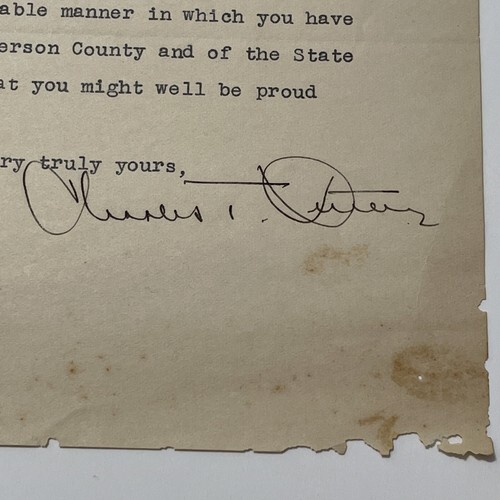 able manner in which you have
erson County and of the State
at you might well be proud
ry truly yours,
Charles T.